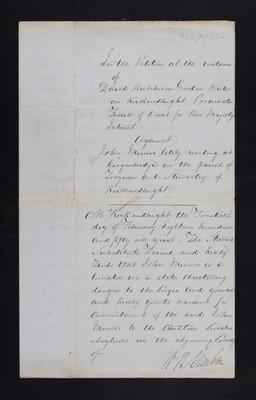 In the Petition at the instance
of
David Hutcheson Gordon Writer
in Kirkcudbright Procurator
Fiscal of Court for Her Majesty's
Interest
Against
John Mirrie lately residing at
in the parish of
Tongland and Stewartry of
Kirkcudbright
At Kirkcudbright the Twentieth
day of February Eighteen hundred
and fifty six years. The Steward
Substitute Found and hereby
Finds that John is a
lunatic in a state threatening
danger to the lieges and grants
and hereby grants warrant for
Commitment of the said John
to the Crichton Lunatic
Asylum in the adjoining County
of